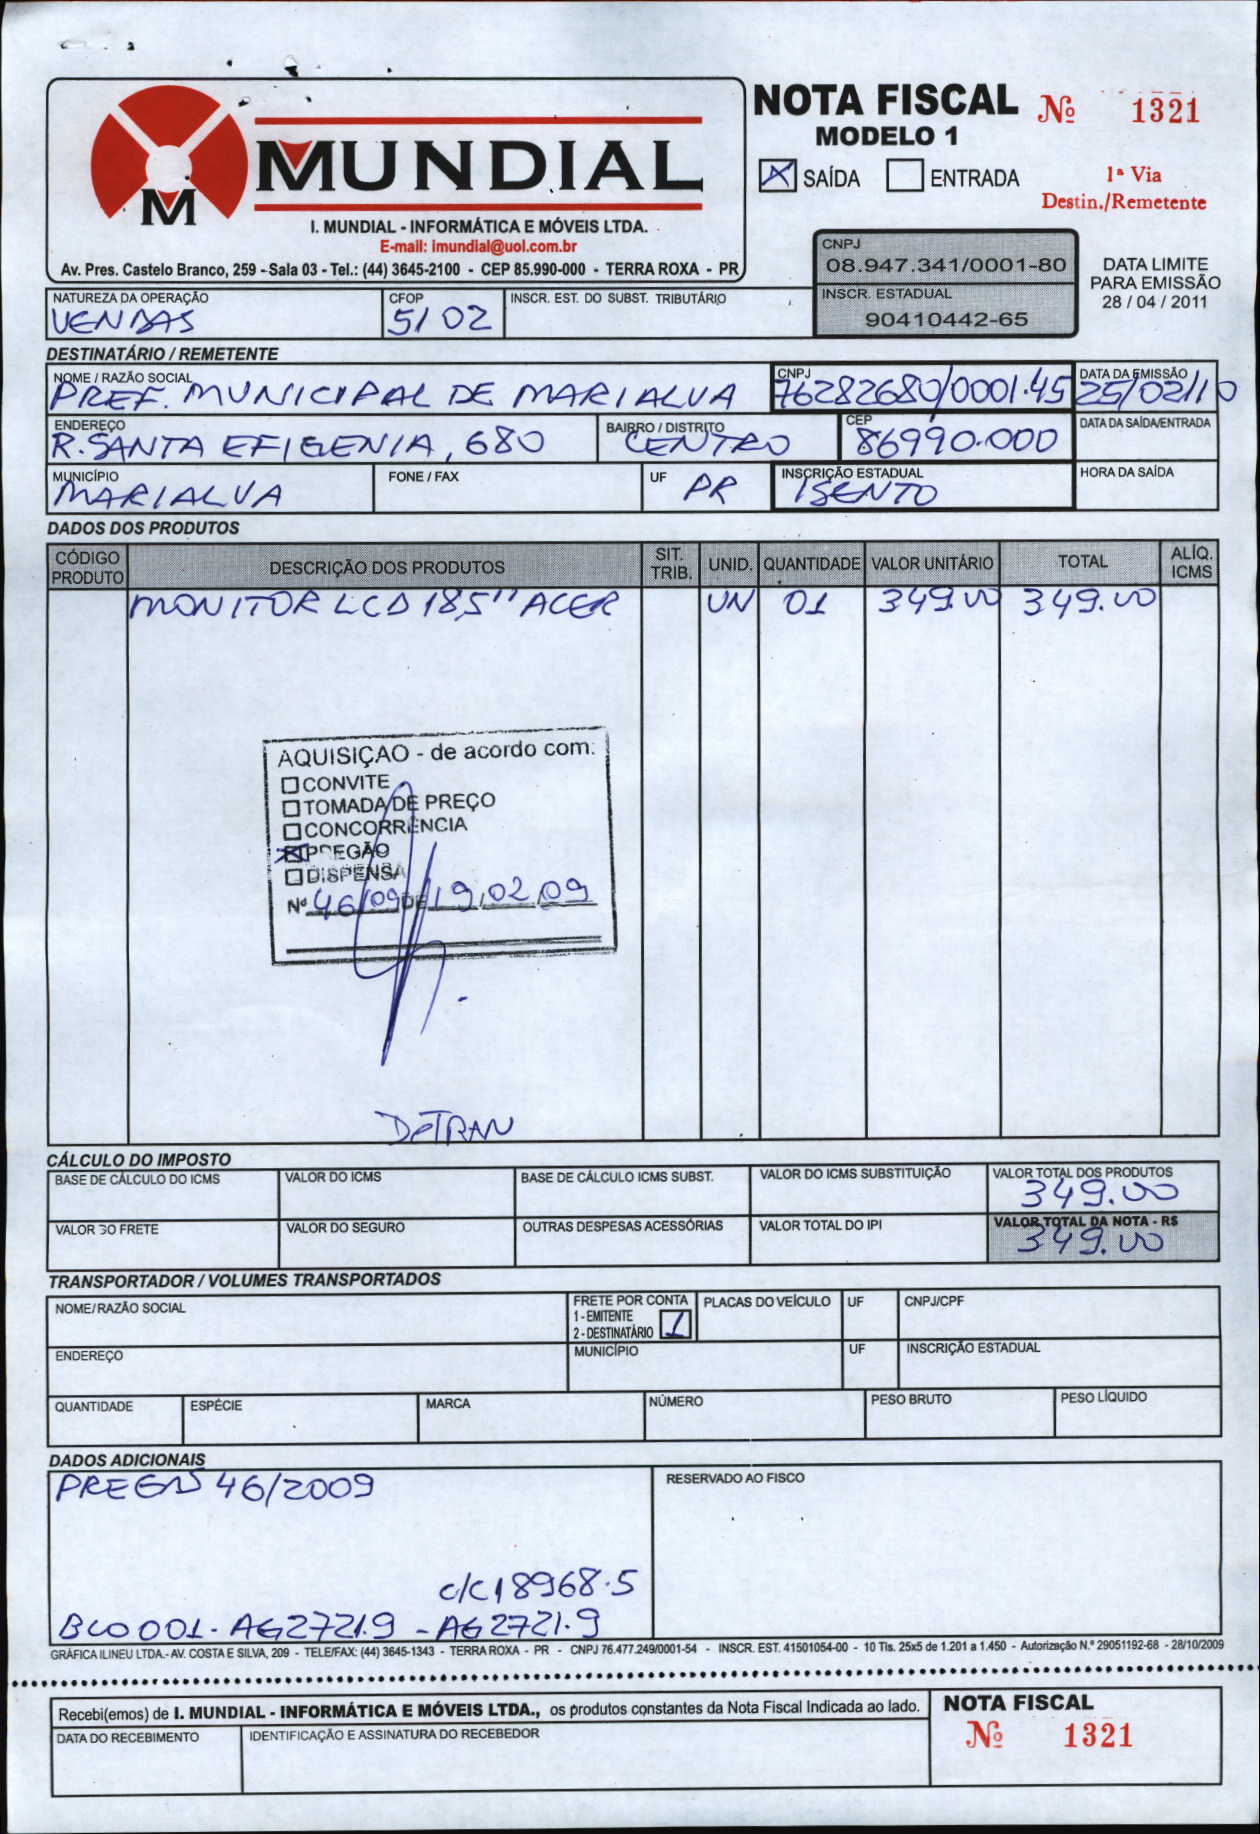 NOTA FISCAL Nº 1321
MODELO 1
SAÍDA ENTRADA
1ª Via
Destin./Remetente
M
MUNDIAL
I. MUNDIAL - INFORMÁTICA E MÓVEIS LTDA.
E-mail: imundial@uol.com.br
Av. Pres. Castelo Branco, 259 - Sala 03 - Tel.: (44) 3645-2100 - CEP 85.990-000 - TERRA ROXA - PR
CNPJ
08.947.341/0001-80
INSCR. ESTADUAL
90410442-65
DATA LIMITE
PARA EMISSÃO
28 / 04 / 2011
NATUREZA DA OPERAÇÃO CFOP INSCR. EST. DO SUBST. TRIBUTÁRIO
VENDAS 5102
DESTINATÁRIO / REMETENTE
NOME / RAZÃO SOCIAL CNPJ DATA DA EMISSÃO
PREF. MUNICIPAL DE MARIALVA 76282680/0001.45 25/02/10
ENDEREÇO BAIRRO / DISTRITO CEP DATA DA SAÍDA/ENTRADA
R. SANTA EFIGENIA, 680 CENTRO 86990.000
MUNICÍPIO FONE / FAX UF INSCRIÇÃO ESTADUAL HORA DA SAÍDA
MARIALVA PR ISENTO
DADOS DOS PRODUTOS
CÓDIGO PRODUTO DESCRIÇÃO DOS PRODUTOS SIT. TRIB. UNID. QUANTIDADE VALOR UNITÁRIO TOTAL ALÍQ. ICMS
MONITOR LCD 18,5" ACER UN 01 349.00 349.00
AQUISIÇÃO - de acordo com:
CONVITE
TOMADA DE PREÇO
CONCORRÊNCIA
PREGÃO
DISPENSA
Nº 46/09 DE 19,02,09
DETRAN
CÁLCULO DO IMPOSTO
BASE DE CÁLCULO DO ICMS VALOR DO ICMS BASE DE CÁLCULO ICMS SUBST. VALOR DO ICMS SUBSTITUIÇÃO VALOR TOTAL DOS PRODUTOS
349.00
VALOR DO FRETE VALOR DO SEGURO OUTRAS DESPESAS ACESSÓRIAS VALOR TOTAL DO IPI VALOR TOTAL DA NOTA - R$
349.00
TRANSPORTADOR / VOLUMES TRANSPORTADOS
NOME/RAZÃO SOCIAL FRETE POR CONTA PLACAS DO VEÍCULO UF CNPJ/CPF
1 - EMITENTE
2 - DESTINATÁRIO 1
ENDEREÇO MUNICÍPIO UF INSCRIÇÃO ESTADUAL
QUANTIDADE ESPÉCIE MARCA NÚMERO PESO BRUTO PESO LÍQUIDO
DADOS ADICIONAIS
RESERVADO AO FISCO
46/2009
c/c 18968.5
BCO 001 - AG 2721.9 - AG 2721.9
GRÁFICA ILINEU LTDA.- AV. COSTA E SILVA, 209 - TELE/FAX: (44) 3645-1343 - TERRA ROXA - PR - CNPJ 76.477.249/0001-54 - INSCR. EST. 41501054-00 - 10 Tls. 25x5 de 1.201 a 1.450 - Autorização N.º 29051192-68 - 28/10/2009
Recebi(emos) de I. MUNDIAL - INFORMÁTICA E MÓVEIS LTDA., os produtos constantes da Nota Fiscal Indicada ao lado.
NOTA FISCAL
Nº 1321
DATA DO RECEBIMENTO IDENTIFICAÇÃO E ASSINATURA DO RECEBEDOR